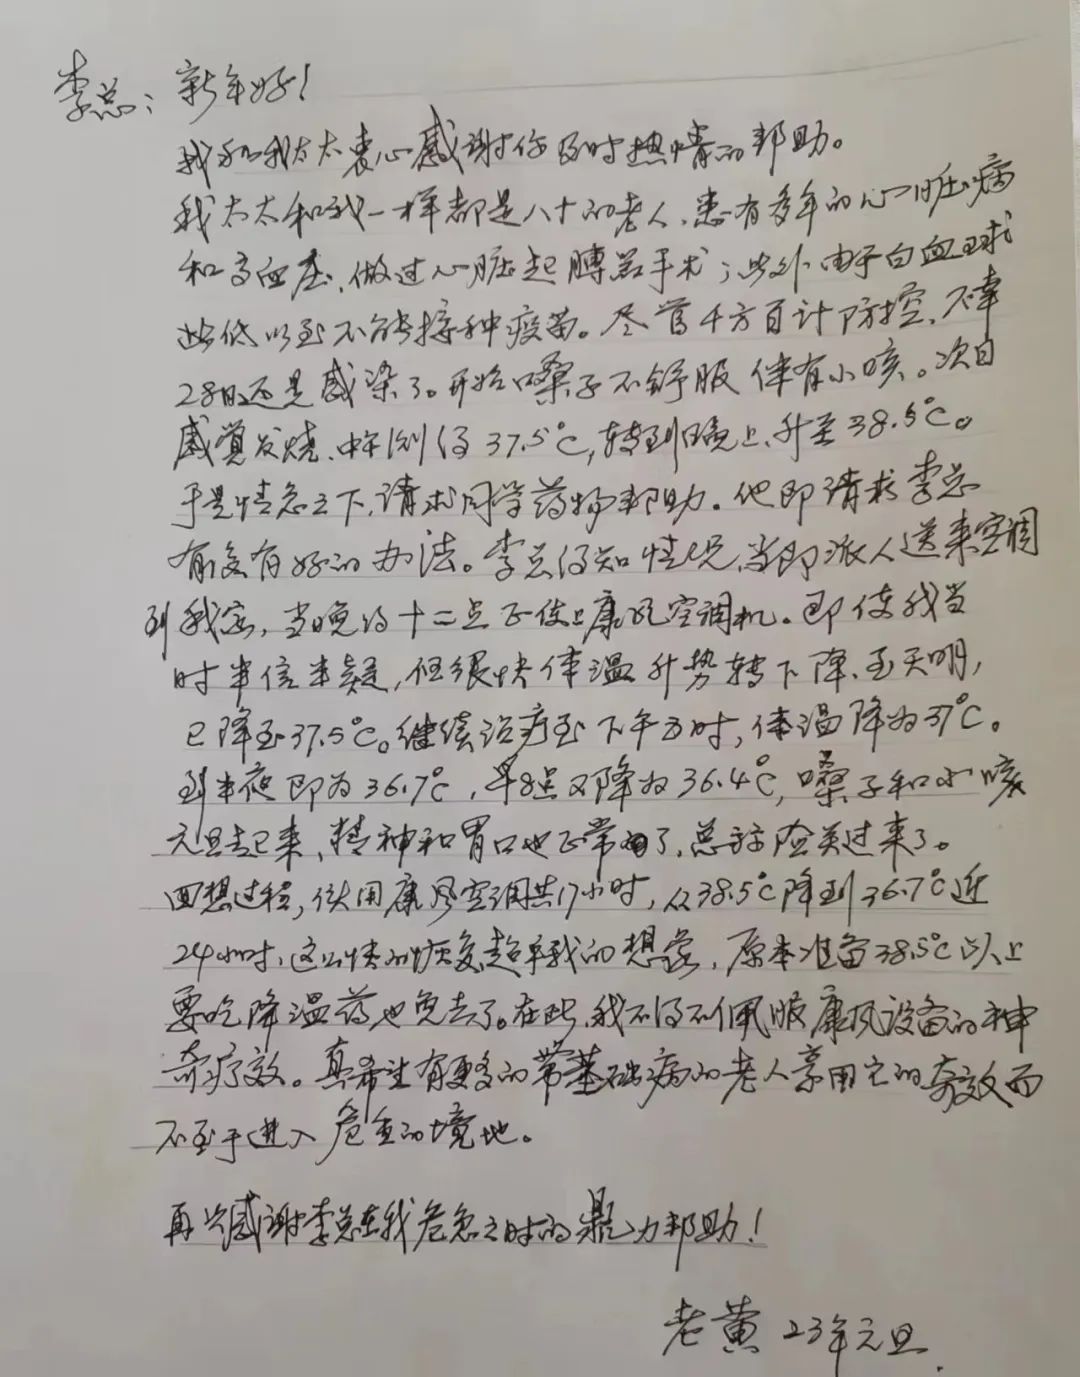 李总：新年好！
我和我太太衷心感谢你及时热情的帮助。
我太太和我一样都是八十的老人、患有多年的心脏病
和高血压、做过心脏起膊器手术；此外由于白血球
低以至不能接种疫苗。尽管千方百计防控、不幸
28日还是感染了。开始嗓子不舒服伴有小咳。次日
感觉发烧、中午测得37.5℃，转到晚上、升至38.5℃。
于是情急之下，请求同学药物帮助。他即请求李总
有没有好的办法。李总得知情况，当即派人送来空调
到我家，当晚的十二点正使上康风空调机。即使我当
时半信半疑，但很快体温升势转下降、至天明，
已降至37.5℃。继续治疗至下午5时，体温降为37℃。
到半夜即为36.7℃，早8点又降为36.4℃，嗓子和小咳
元旦起来、精神和胃口也正常了，总算险关过来了。
回想过程，使用康风空调共17小时，从38.5℃降到36.7℃近
24小时、这么快的恢复超乎我的想象，原本准备38.5℃以上
要吃降温药也免去了。在此，我不得不佩服康风设备的神
奇疗效。真希望有更多的带基础病的老人享用它的奇效而
不至于进入危重的境地。
再次感谢李总在我危急之时的鼎力帮助！
老黄 23年元旦.